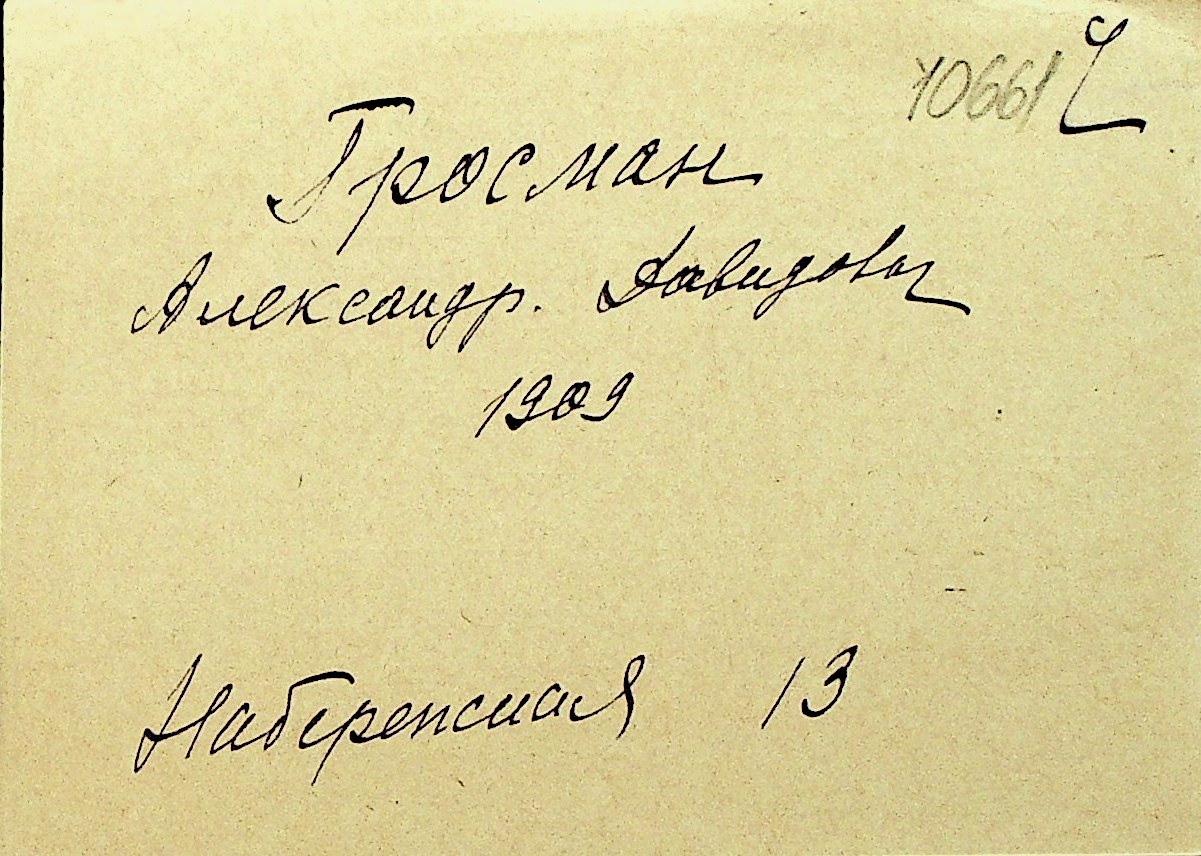 10661 Ч
Гросман
Александр. Давидович
1909
Набережная 13